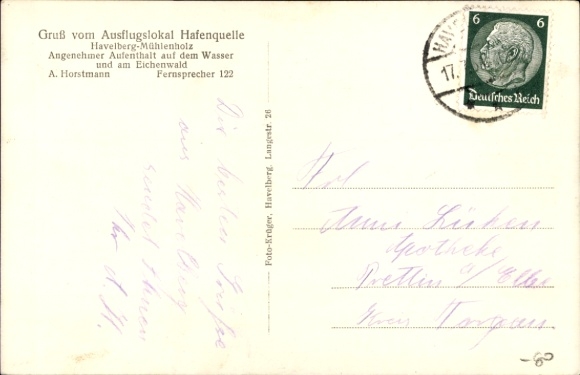 Gruß vom Ausflugslokal Hafenquelle
Havelberg-Mühlenholz
Angenehmer Aufenthalt auf dem Wasser
und am Eichenwald
A. Horstmann Fernsprecher 122
Die besten Grüße
aus Havelberg
sendet Ihnen
Ihr A. H.
Foto-Krüger, Havelberg, Langestr. 26
HAV
17.
6 6
Deutsches Reich
Frl.
Anni
Apotheke
Prettin a/Elbe
Kreis Torgau.
-80